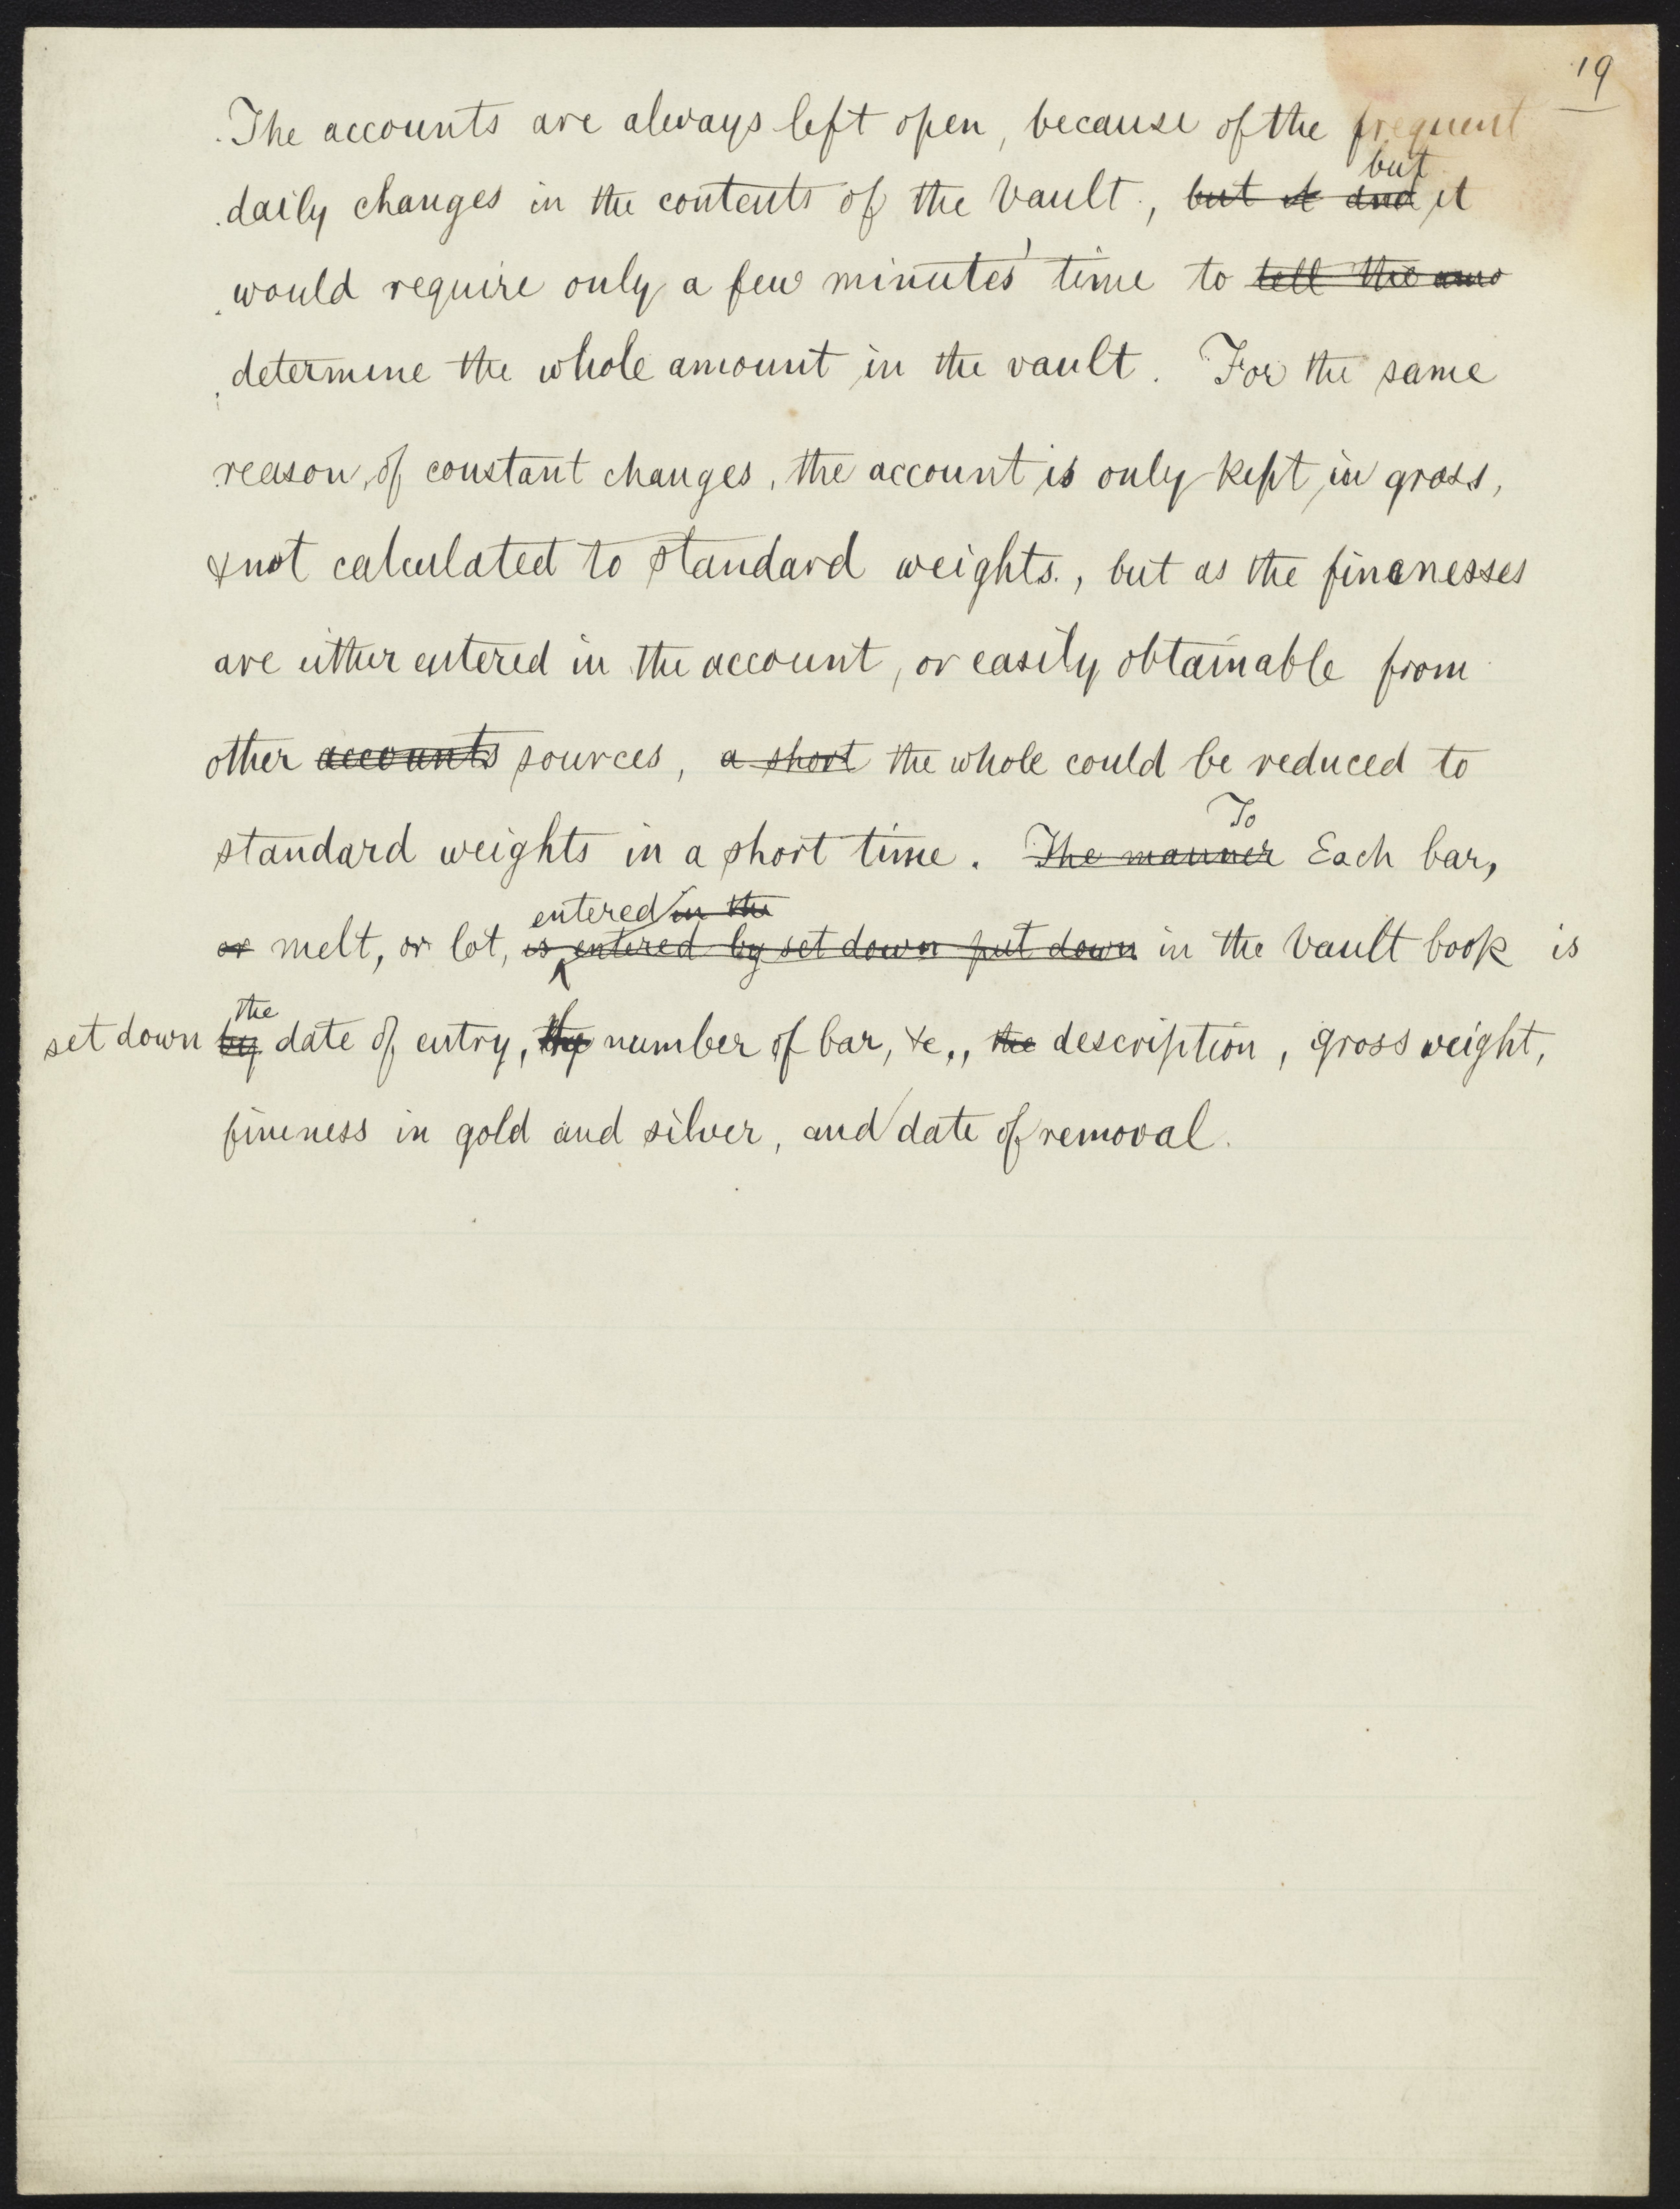 19
The accounts are always left open, because of the frequent
but
daily changes in the contents of the Vault, but it and it
would require only a few minutes' time to tell the amo
determine the whole amount in the vault. For the same
reason, of constant changes, the account is only kept in gross,
& not calculated to standard weights., but as the finenesses
are either entered in the account, or easily obtainable from
other accounts sources, a short the whole could be reduced to
To
standard weights in a short time. The manner Each bar,
entered in the
or melt, or lot, is entered by set down put down in the Vault book is
the
set down by date of entry, the number of bar, &c,, the description, gross weight,
fineness in gold and silver, and date of removal.